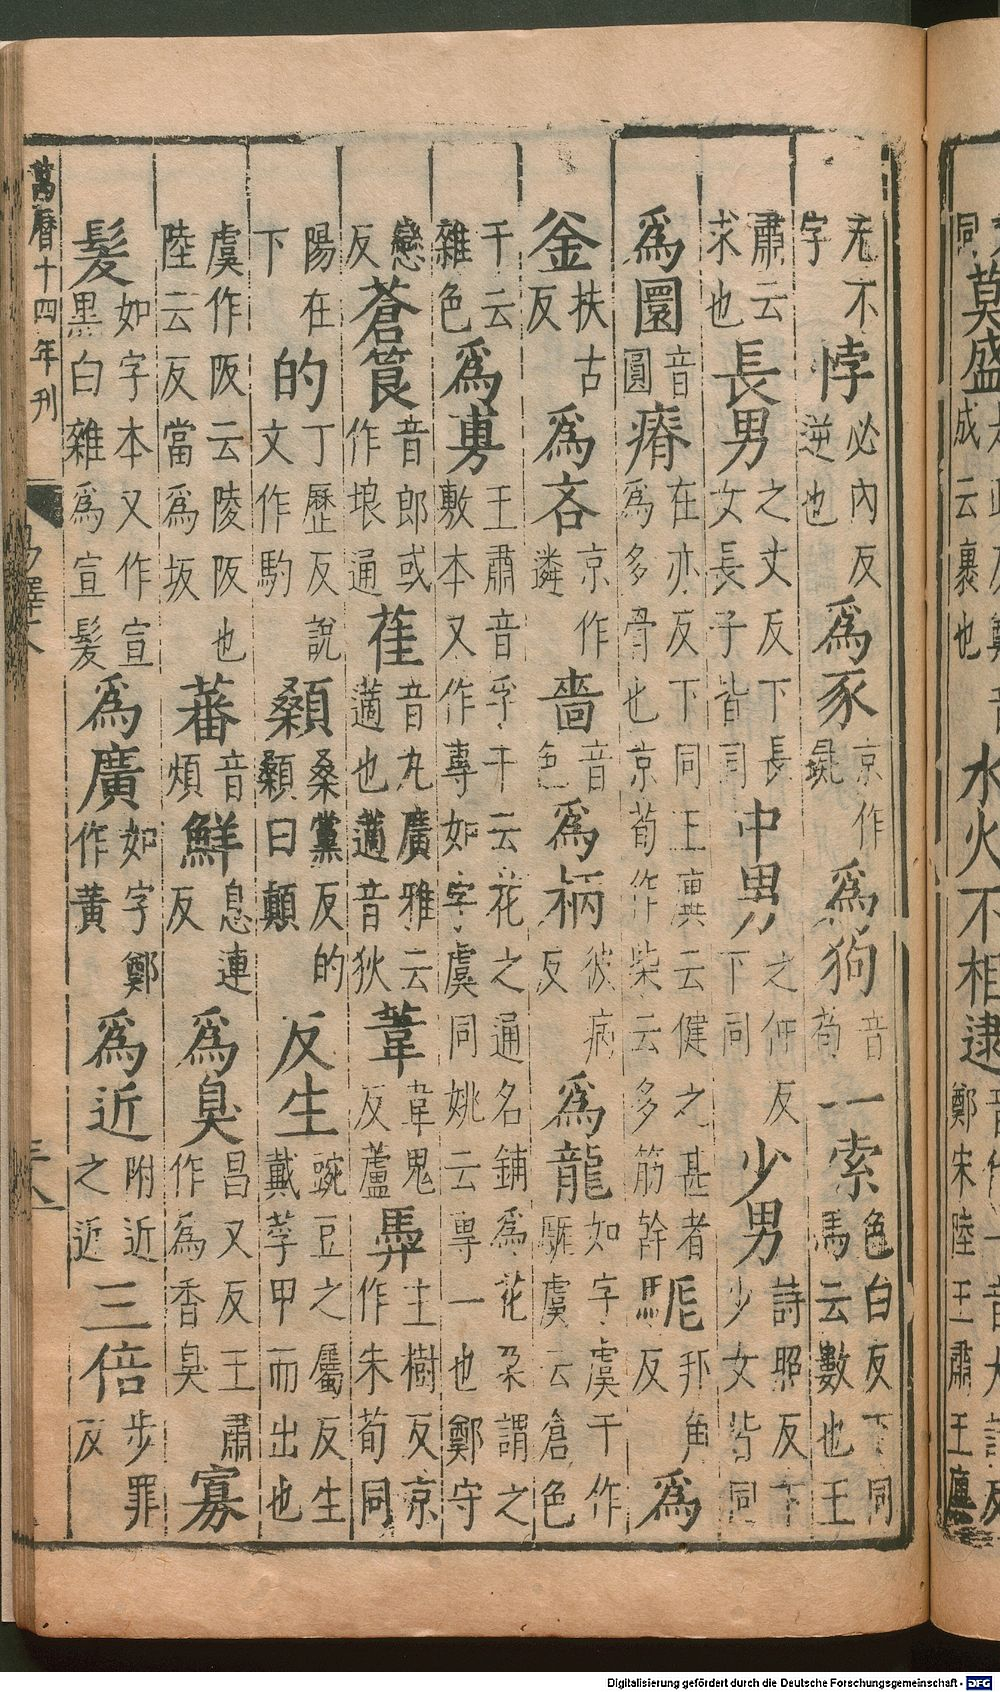 同莫盛成云裹也水火不相逮鄭宋陸王肅王廙
无不字悖必內反逆也為豕京作彘為狗音苟一索色白反下同馬云數也王
肅云求也長男之丈反下長女長子皆同中男之仲反下同少男詩照反下少女皆同
為圜音圓瘠在亦反下同王廙云健之甚者為多骨也京荀作柴云多筋幹駁邦角反為
釜扶古反為吝京作遴嗇音色為柄彼病反為龍如字虞干作駹虞云倉色
干云雜色為旉王肅音孚干云花之通名鋪為花朵謂之敷本又作專如字虞同姚云專一也鄭守
戀反蒼筤音郎或作埌通萑音丸廣雅云藡也藡音狄葦韋鬼反蘆馵主樹反京作朱荀同
陽在下的丁歷反說文作馰顙桑黨反的顙曰顛反生豌豆之屬反生戴莩甲而出也
虞作阪云陵阪也陸云反當為坂蕃音煩鮮息連反為臭昌又反王肅作為香臭寡
髮如字本又作宣黑白雜為宣髮為廣如字鄭作黃為近附近之近三倍步罪反
萬曆十四年刊
易釋文
Digitalisierung gefördert durch die Deutsche Forschungsgemeinschaft - DFG